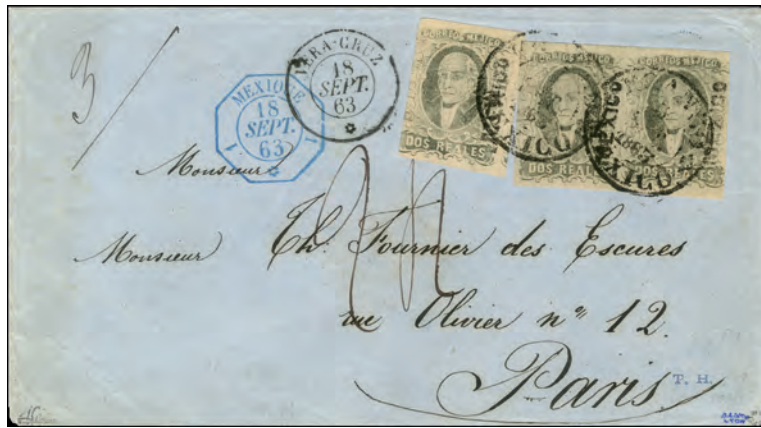 3/
VERA-CRUZ
18
SEPT.
63
MEXIQUE
18
SEPT.
63
1 1
CORREOS MEJICO
DOS REALES
CORREOS MEJICO
DOS REALES
CORREOS MEJICO
DOS REALES
MEXICO
MEXICO
MEXICO
MEXICO
1863
Monsieur
Monsieur Th. Fournier des Escures
rue Olivier n° 12.
Paris
T. H.